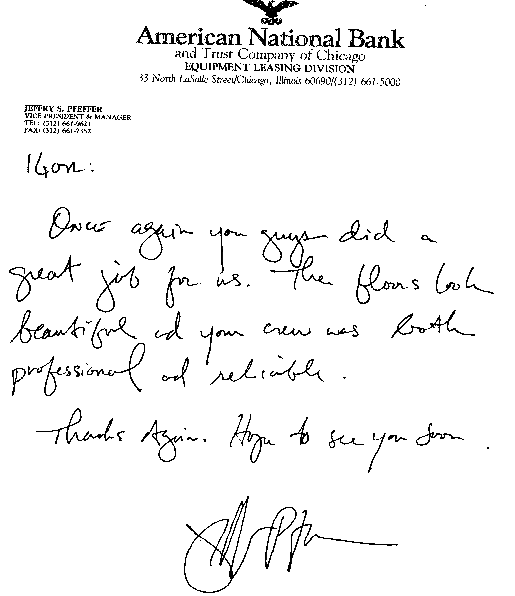 American National Bank
and Trust Company of Chicago
EQUIPMENT LEASING DIVISION
33 North LaSalle Street/Chicago, Illinois 60690/(312) 661-5000
JEFFRY S. PFEFFER
VICE PRESIDENT & MANAGER
TEL: (312) 661-9621
FAX: (312) 661-7352
Igor:
Once again you guys did a
great job for us. The floors look
beautiful ad your crew was both
professional ad reliable.
Thanks Again. Hope to see you soon.